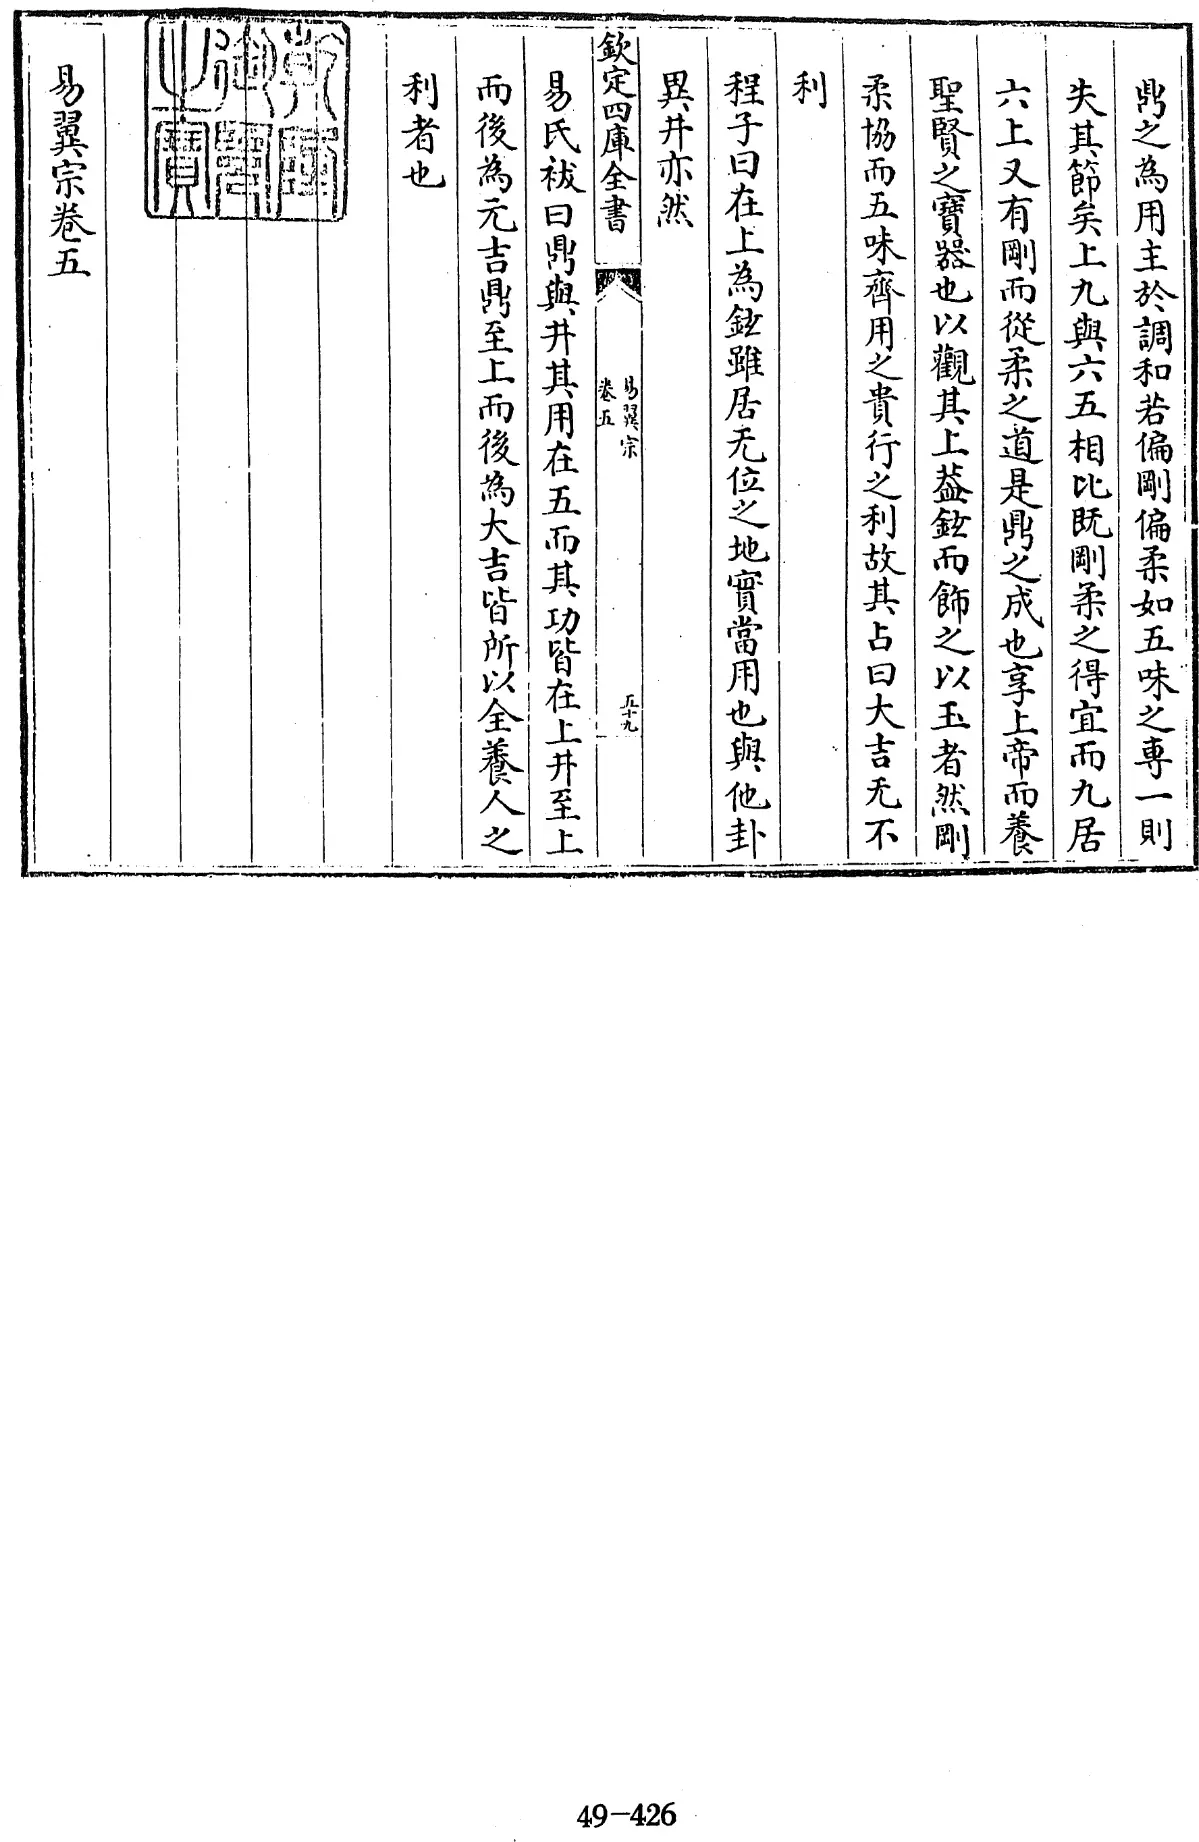 鼎之為用主於調和若偏剛偏柔如五味之專一則
失其節矣上九與六五相比既剛柔之得宜而九居
六上又有剛而從柔之道是鼎之成也享上帝而養
聖賢之寶器也以觀其上葢鉉而飾之以玉者然剛
柔協而五味齊用之貴行之利故其占曰大吉无不
利
程子曰在上為鉉雖居无位之地實當用也與他卦
異井亦然
欽定四庫全書
易翼宗
卷五
五十九
易氏祓曰鼎與井其用在五而其功皆在上井至上
而後為元吉鼎至上而後為大吉皆所以全養人之
利者也
乾隆御覽之寶
易翼宗卷五
49-426